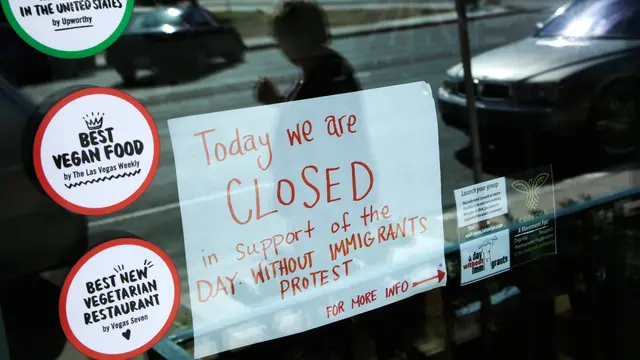 IN THE UNITED STATES
by Upworthy
BEST
VEGAN FOOD
by The Las Vegas Weekly
BEST NEW
VEGETARIAN
RESTAURANT
by Vegas Seven
Today we are
CLOSED
in support of the
DAY WITHOUT IMMIGRANTS
PROTEST
FOR MORE INFO
Launch your group!
a day
without
immigrants
A Movement For:
Dignity